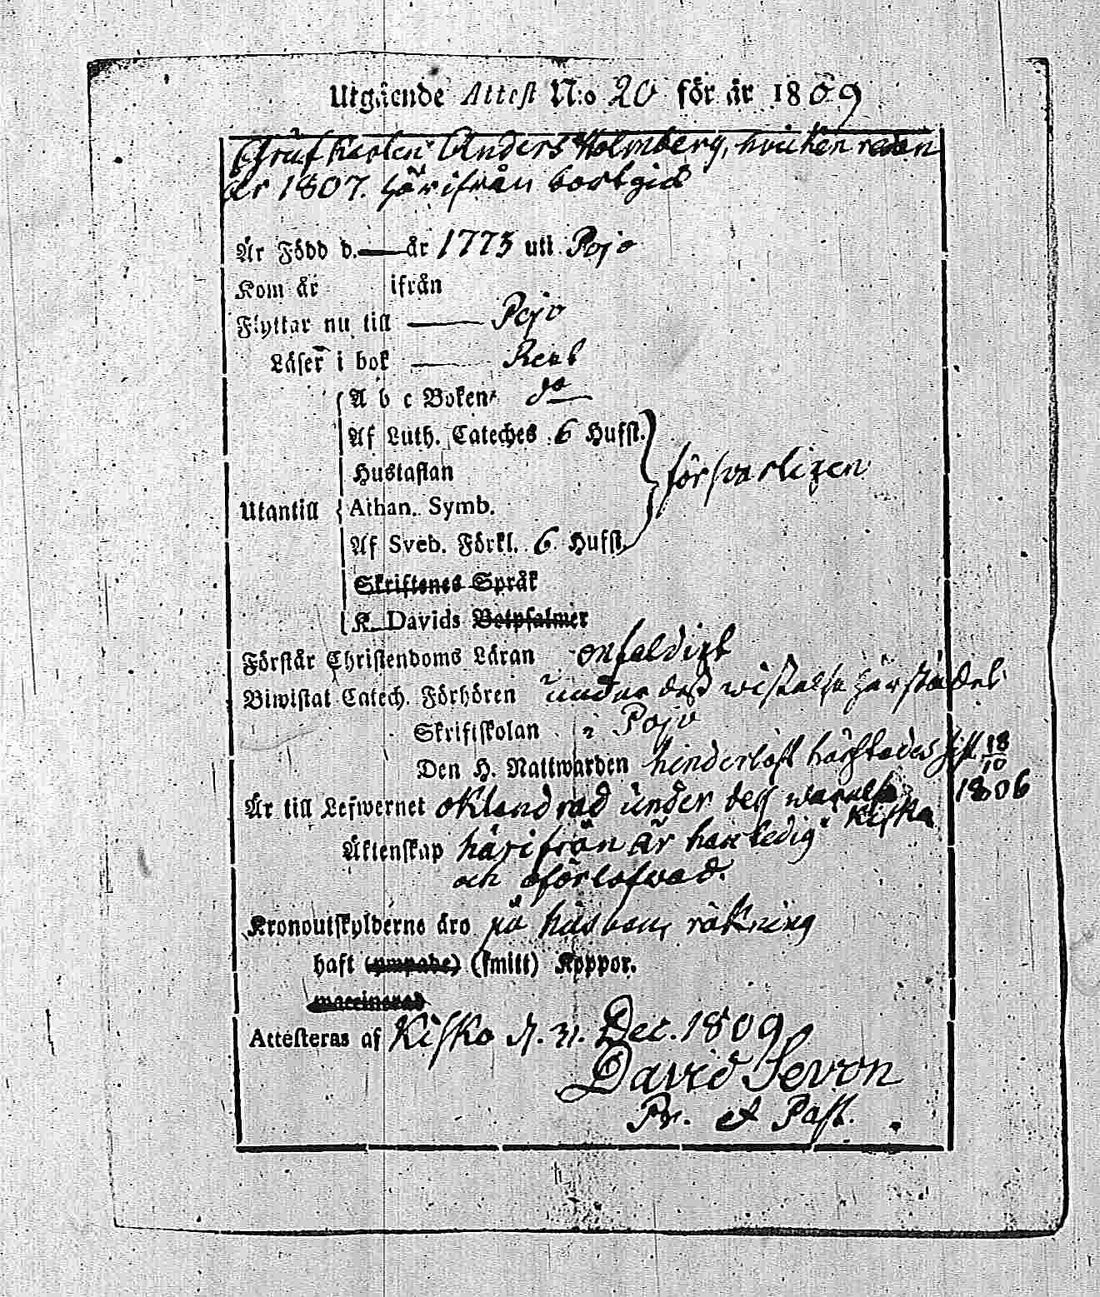 Utgående Attest N:o 20 för år 1809
Anders Holmberg, hvilken redan
år 1807. härifrån bortgick
Är Född d. — år 1775 uti Pojo
Kom år ifrån
Flyttar nu till — Pojo
Läser i bok — Rent
A b c Boken do
Af Luth. Cateches 6 Hufst.
Hustaflan försvarligen
Utantill Athan. Symb.
Af Sveb. Förkl. 6 Hufst.
Skriftenes Språk
K. Davids Botpsalmer
Förstår Christendoms Läran enfaldigt
Biwistat Catech. Förhören under dess wistelse härstädes
Skriftskolan i Pojo
Den H. Nattwarden hinderlöst härstädes sist 18/10
Är till Lefwernet oklandrad under dess 1806
Kisko
Äktenskap härifrån är han ledig
och oförlofwad.
Kronoutskylderne äro på räkning
haft (smitt) Koppor.
Attesteras af Kisko d. 31. Dec. 1809
David Sevon
Pr. et Past.